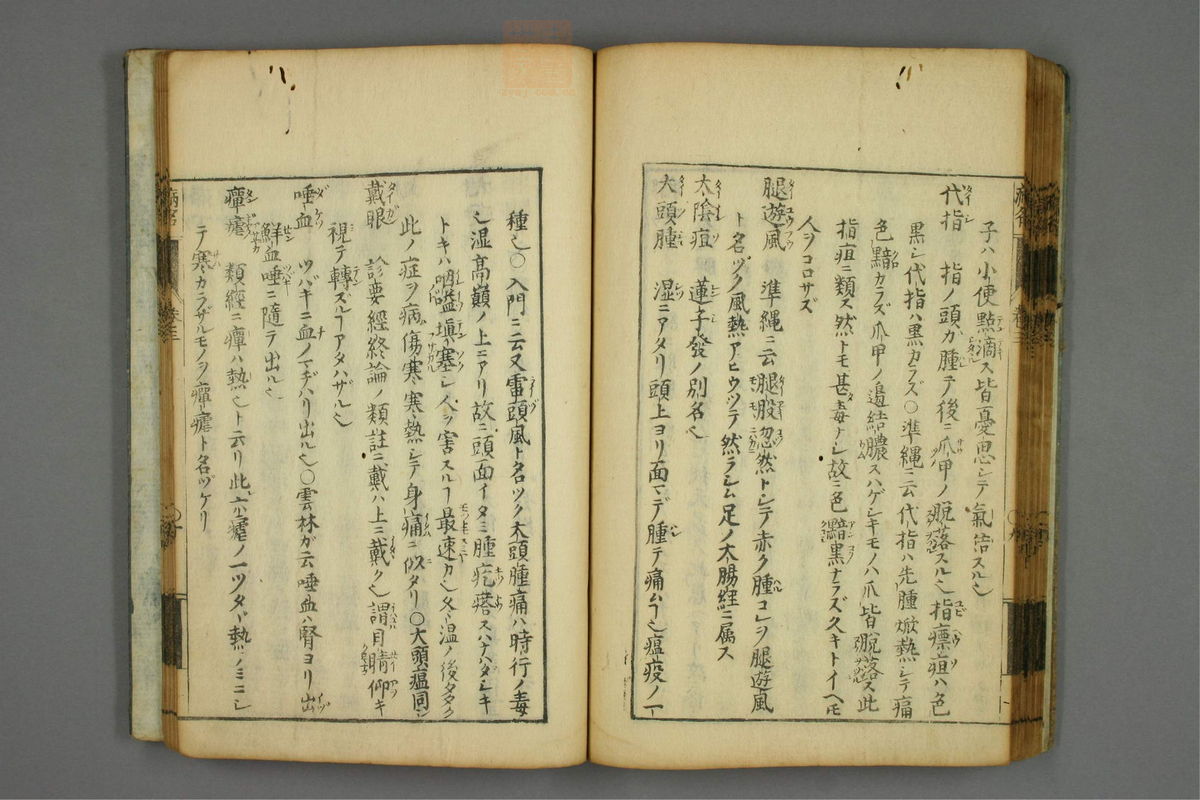 子ハ小便點滴ス皆憂思シテ氣結スル也
代指 指ノ頭カ腫テ後ニ爪甲ノ脱落スル也指㾱疽ハ色
黒シ代指ハ黒カラズ○準縄ニ云代指ハ先腫焮熱シテ痛
色黯カラズ爪甲ノ邉結膿スハゲシキモノハ爪皆脱落ス此
指疽ニ類ス然トモ甚毒ナシ故ニ色黯黒ナラズ久キトイヘモ
人ヲコロサズ
腿遊風 準縄ニ云腿股忽然トシテ赤ク腫コレヲ腿遊風
ト名ツク風熱アヒウツテ然ラシム足ノ太腸經ニ属ス
太陰疽 蓮子發ノ別名也
大頭腫 湿ニアタリ頭上ヨリ面マデ腫テ痛ムヿ也瘟疫ノ一
種也○入門ニ云又雷頭風ト名ツク大頭腫痛ハ時行ノ毒
也湿高巓ノ上ニアリ故ニ頭面イタミ腫疙瘩スハナハダシキ
トキハ咽嗌塡塞シ人ヲ害スルヿ最速カ也冬温ノ後多ク
此ノ症ヲ病傷寒寒熱シテ身痛ニ似タリ○大頭瘟同シ
戴眼 診要經終論ノ類註ニ戴ハ上ニ戴ク也謂目睛仰キ
視テ轉ズルヿアタハザル也
唾血 ツバキニ血ノマヂハリ出ル也○雲林ガ云唾血ハ腎ヨリ出
鮮血唾ニ隨テ出ル也
癉瘧 類經ニ癉ハ熱也ト云リ此六瘧ノ一ツタヾ熱ノミニシ
テ寒カラザルモノヲ癉瘧ト名ヅケリ